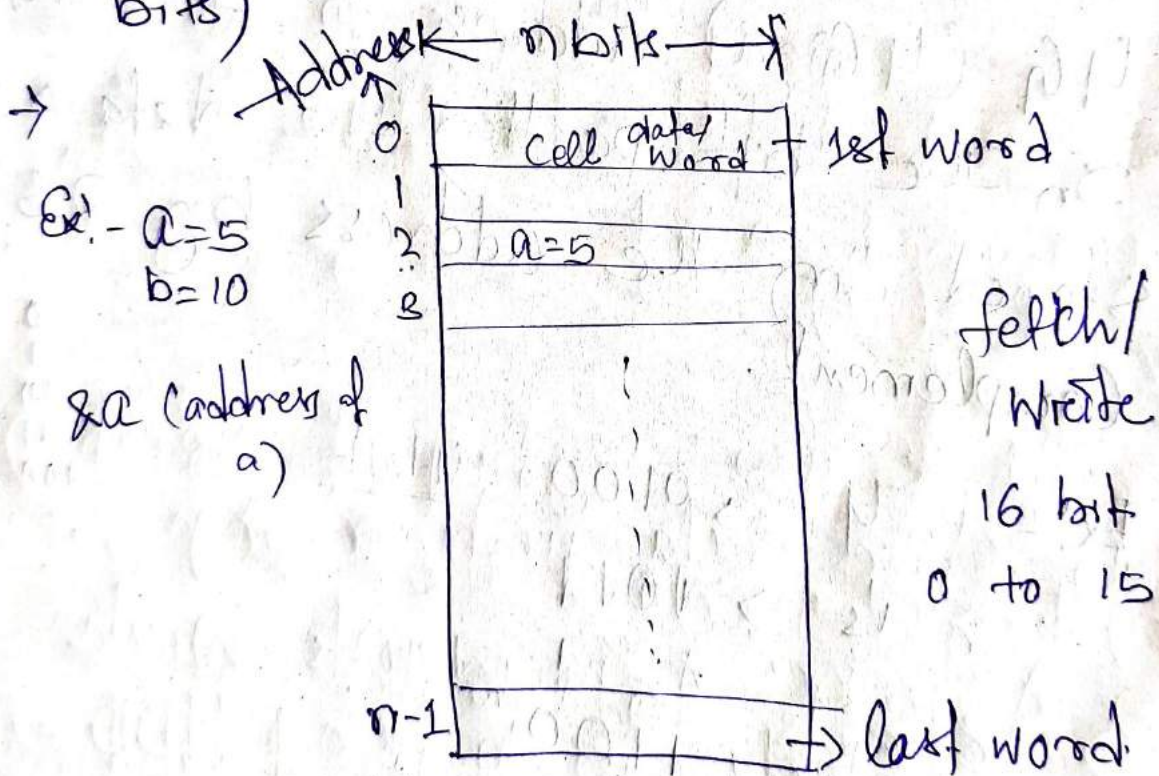 bits)
→ Address ← n bits →
0 Cell data/ word → 1st word
1
Ex:- a=5
b=10
2 a=5
3
&a (address of
a)
fetch/
Write
16 bit
0 to 15
n-1 → last word.